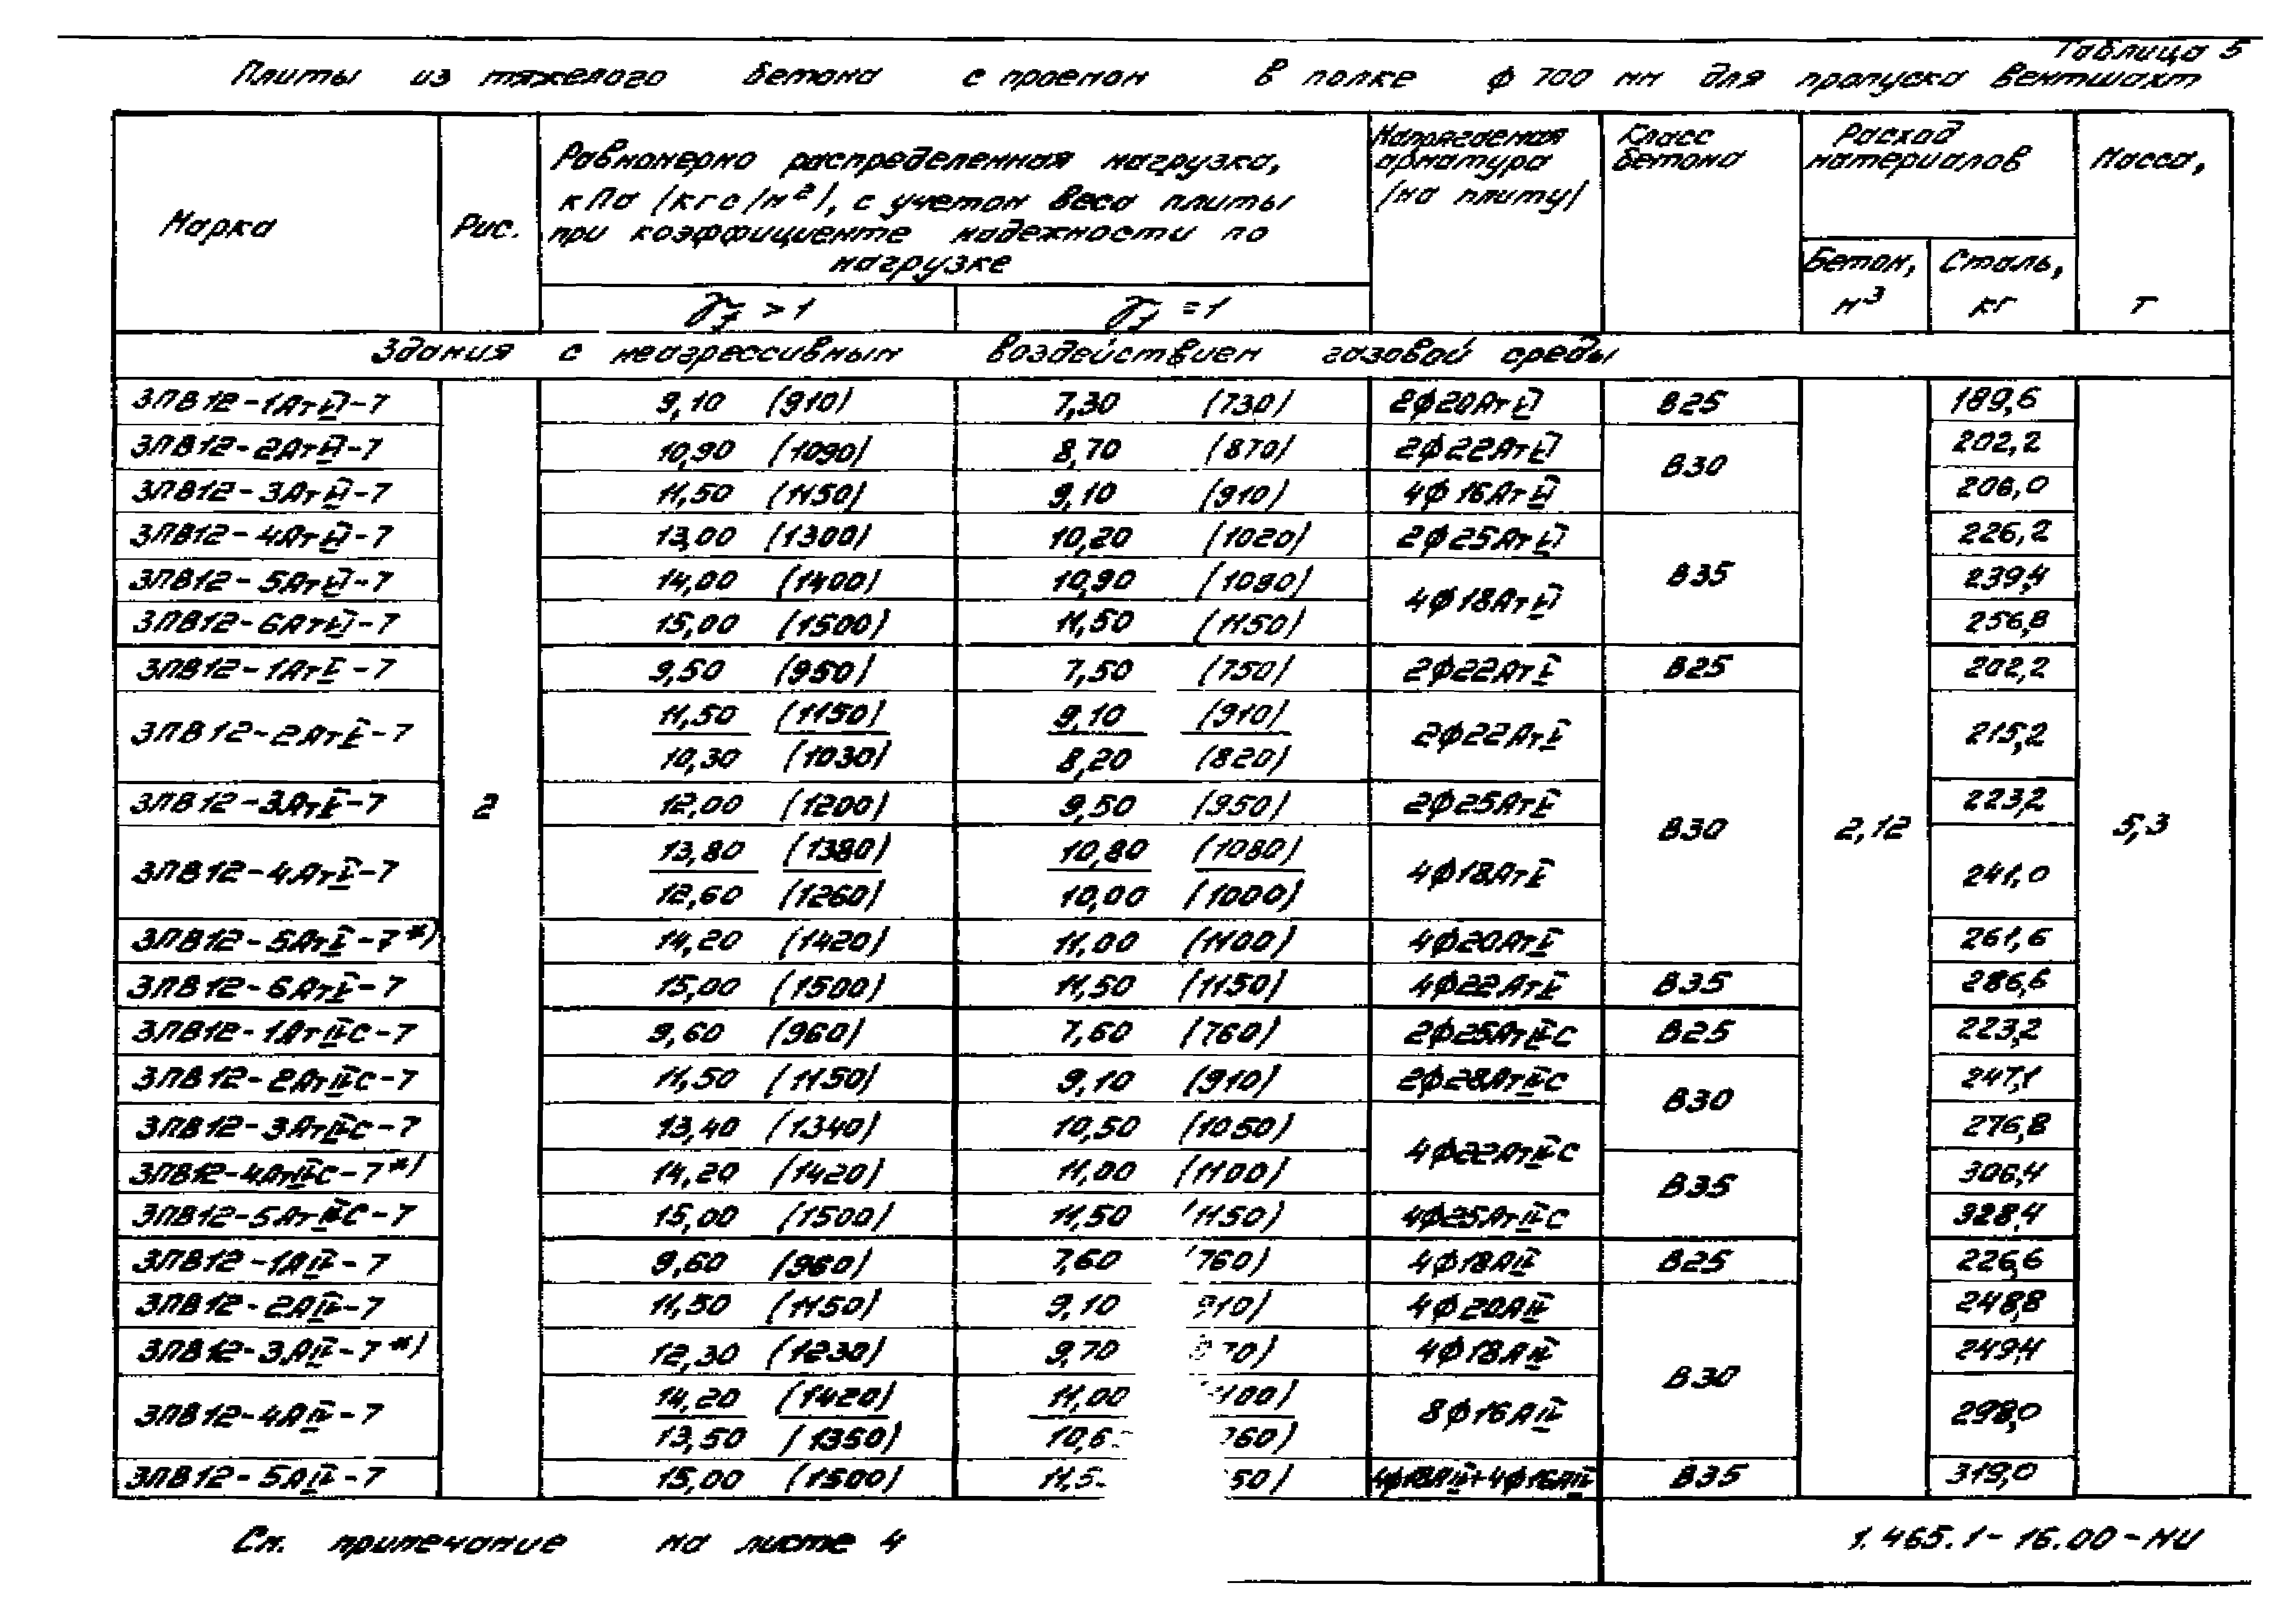 Таблица 5
Плиты из тяжелого бетона с проемом в полке ф 700 мм для пропуска вентшахт
Марка
Рис.
Равномерно распределенная нагрузка,
кПа (кгс/м²), с учетом веса плиты
при коэффициенте надежности по
нагрузке
γf > 1
γf = 1
Напрягаемая
арматура
(на плиту)
Класс
бетона
Расход
материалов
Бетон,
м³
Сталь,
кг
Масса,
т
Здания с неагрессивным воздействием газовой среды
3ПВ12-1АтVI-7 9,10 (910) 7,30 (730) 2ф20АтVI В25 189,6
3ПВ12-2АтVI-7 10,90 (1090) 8,70 (870) 2ф22АтVI В30 202,2
3ПВ12-3АтVI-7 11,50 (1150) 9,10 (910) 4ф16АтVI 206,0
3ПВ12-4АтVI-7 13,00 (1300) 10,20 (1020) 2ф25АтVI 226,2
3ПВ12-5АтVI-7 14,00 (1400) 10,90 (1090) 4ф18АтVI В35 239,4
3ПВ12-6АтVI-7 15,00 (1500) 11,50 (1150) 256,8
3ПВ12-1АтV-7 9,50 (950) 7,50 (750) 2ф22АтV В25 202,2
3ПВ12-2АтV-7 11,50 (1150) 9,10 (910) 2ф22АтV 215,2
10,30 (1030) 8,20 (820)
3ПВ12-3АтV-7 2 12,00 (1200) 9,50 (950) 2ф25АтV В30 2,12 223,2 5,3
3ПВ12-4АтV-7 13,80 (1380) 10,80 (1080) 4ф18АтV 241,0
12,60 (1260) 10,00 (1000)
3ПВ12-5АтV-7*) 14,20 (1420) 11,00 (1100) 4ф20АтV 261,6
3ПВ12-6АтV-7 15,00 (1500) 11,50 (1150) 4ф22АтV В35 286,6
3ПВ12-1АтIVС-7 9,60 (960) 7,60 (760) 2ф25АтIVС В25 223,2
3ПВ12-2АтIVС-7 11,50 (1150) 9,10 (910) 2ф28АтIVС В30 247,1
3ПВ12-3АтIVС-7 13,40 (1340) 10,50 (1050) 4ф22АтIVС 276,8
3ПВ12-4АтIVС-7*) 14,20 (1420) 11,00 (1100) В35 306,4
3ПВ12-5АтIVС-7 15,00 (1500) 11,50 1150) 4ф25АтIVС 328,4
3ПВ12-1АIV-7 9,60 (960) 7,60 760) 4ф18АIV В25 226,6
3ПВ12-2АIV-7 11,50 (1150) 9,10 910) 4ф20АIV 248,8
3ПВ12-3АIV-7*) 12,30 (1230) 9,70 70) 4ф18АIV В30 249,4
3ПВ12-4АIV-7 14,20 (1420) 11,00 100) 8ф16АIV 298,0
13,50 (1350) 10,6 060)
3ПВ12-5АIV-7 15,00 (1500) 11,5 50) 4ф18АIV+4ф16АIV В35 319,0
См. примечание на листе 4
1.465.1-16.00-МИ